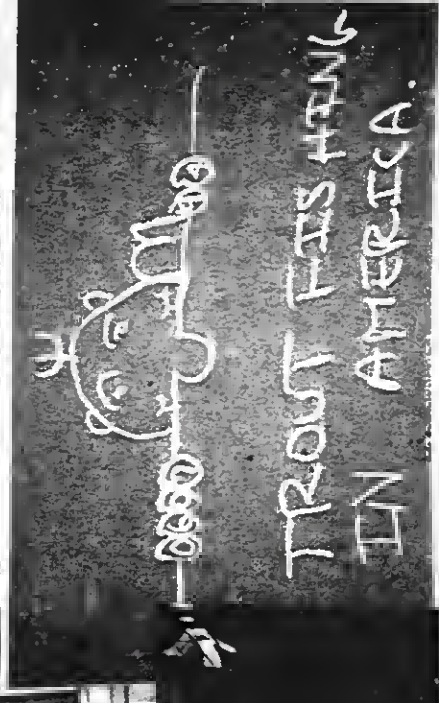 TROUT FISHING
IN AMERICA.